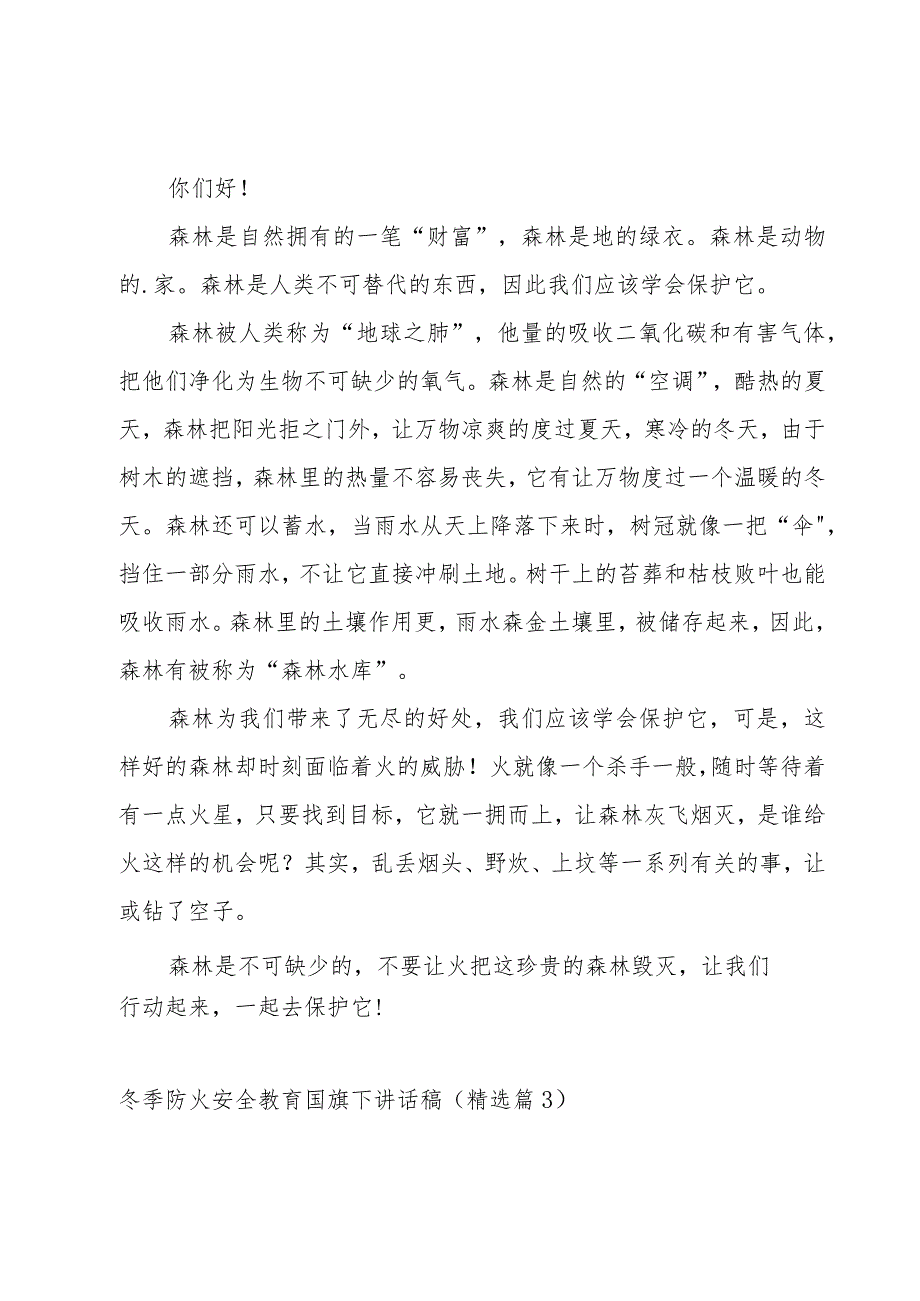 你们好！
森林是自然拥有的一笔“财富”，森林是地的绿衣。森林是动物
的.家。森林是人类不可替代的东西，因此我们应该学会保护它。
森林被人类称为“地球之肺”，他量的吸收二氧化碳和有害气体，
把他们净化为生物不可缺少的氧气。森林是自然的“空调”，酷热的夏
天，森林把阳光拒之门外，让万物凉爽的度过夏天，寒冷的冬天，由于
树木的遮挡，森林里的热量不容易丧失，它有让万物度过一个温暖的冬
天。森林还可以蓄水，当雨水从天上降落下来时，树冠就像一把“伞"，
挡住一部分雨水，不让它直接冲刷土地。树干上的苔葬和枯枝败叶也能
吸收雨水。森林里的土壤作用更，雨水森金土壤里，被储存起来，因此，
森林有被称为“森林水库”。
森林为我们带来了无尽的好处，我们应该学会保护它，可是，这
样好的森林却时刻面临着火的威胁！火就像一个杀手一般，随时等待着
有一点火星，只要找到目标，它就一拥而上，让森林灰飞烟灭，是谁给
火这样的机会呢？其实，乱丢烟头、野炊、上坟等一系列有关的事，让
或钻了空子。
森林是不可缺少的，不要让火把这珍贵的森林毁灭，让我们
行动起来，一起去保护它!
冬季防火安全教育国旗下讲话稿（精选篇3）